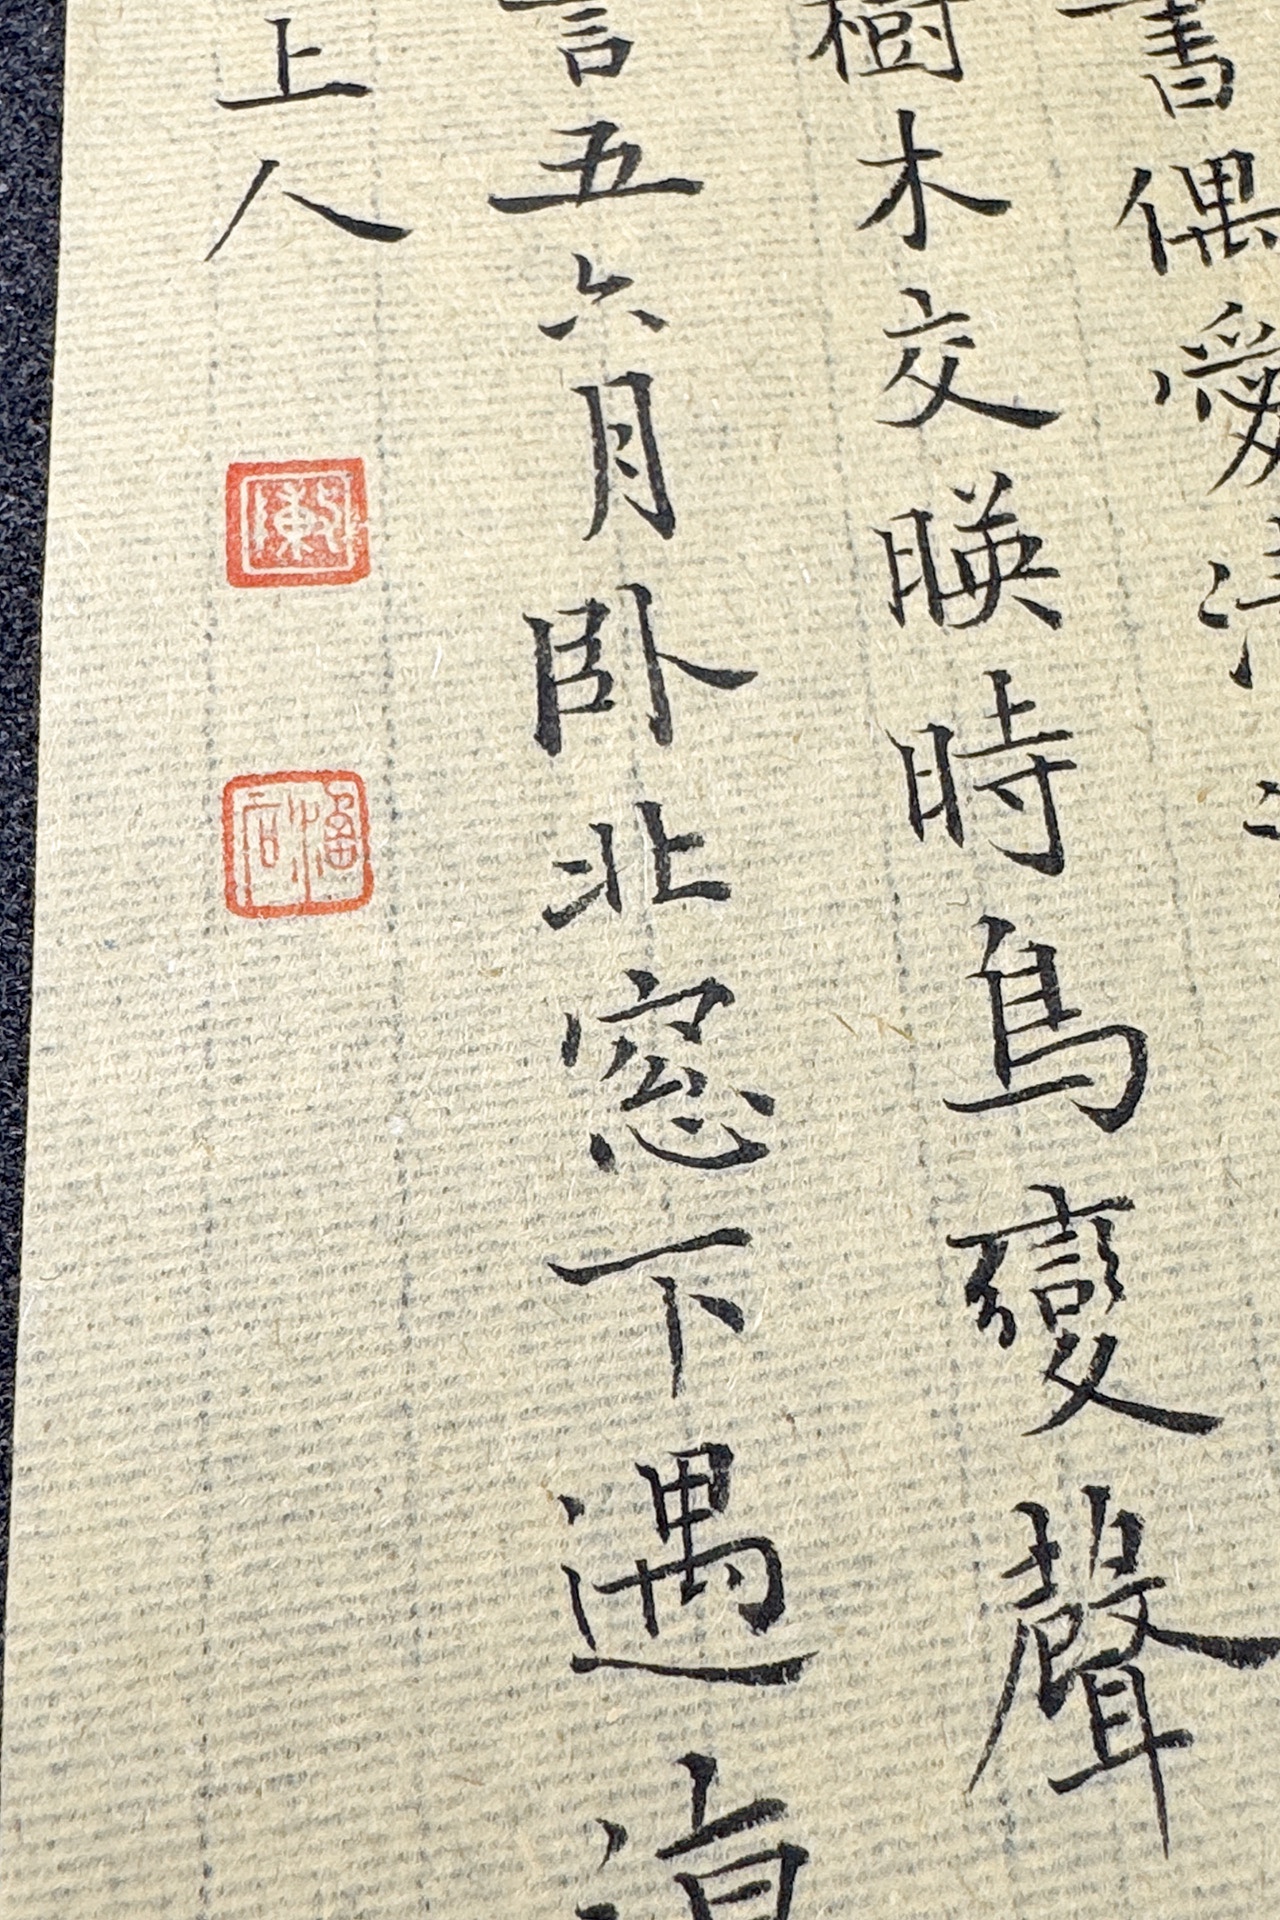 書偶愛
樹木交暎時鳥變聲
言五六月卧北窓下遇
上人